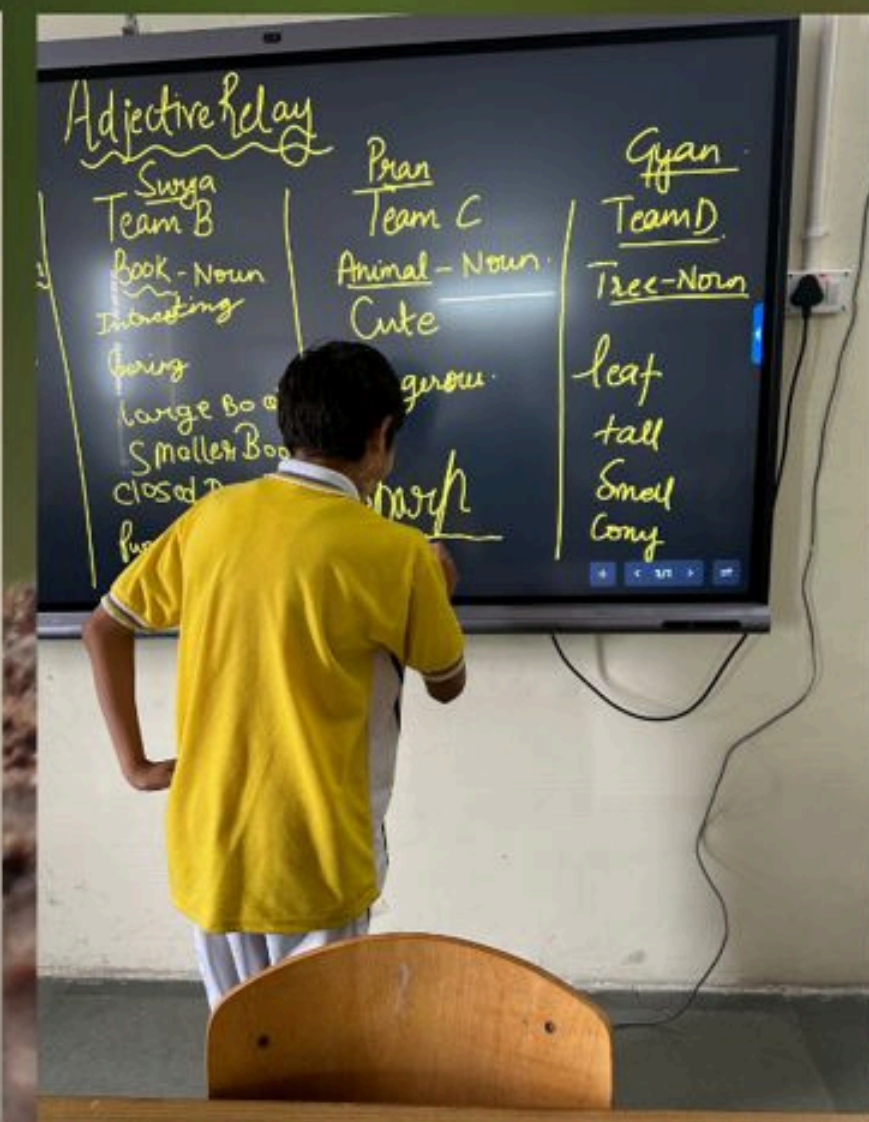 Adjective Relay
Surya
Team B
Book - Noun
Intresting
Boring
large Boo
Smaller Boo
Closed
Pran
Team C
Animal - Noun.
Cute
gerous.
sharp
Gyan
Team D
Tree - Noun
leaf
tall
Small
Cony